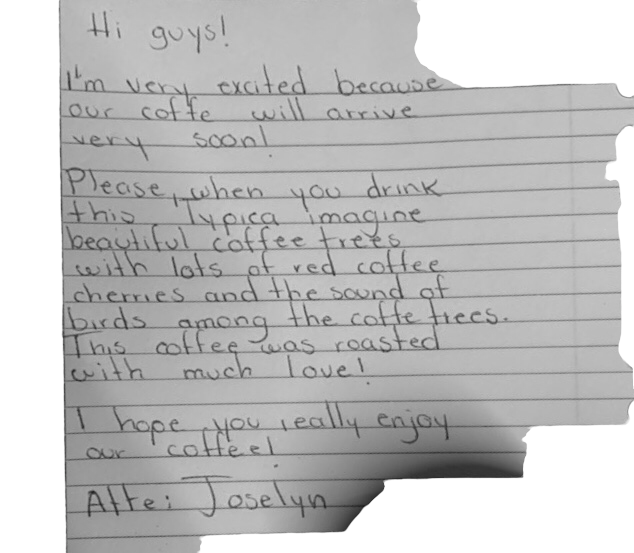 Hi guys!
I'm very excited because
our coffe will arrive
very soon!
Please, when you drink
this Typica imagine
beautiful coffee trees
with lots of red coffee
cherries and the sound of
birds among the coffe trees.
This coffee was roasted
with much love!
I hope you really enjoy
our coffee!
Atte: Joselyn